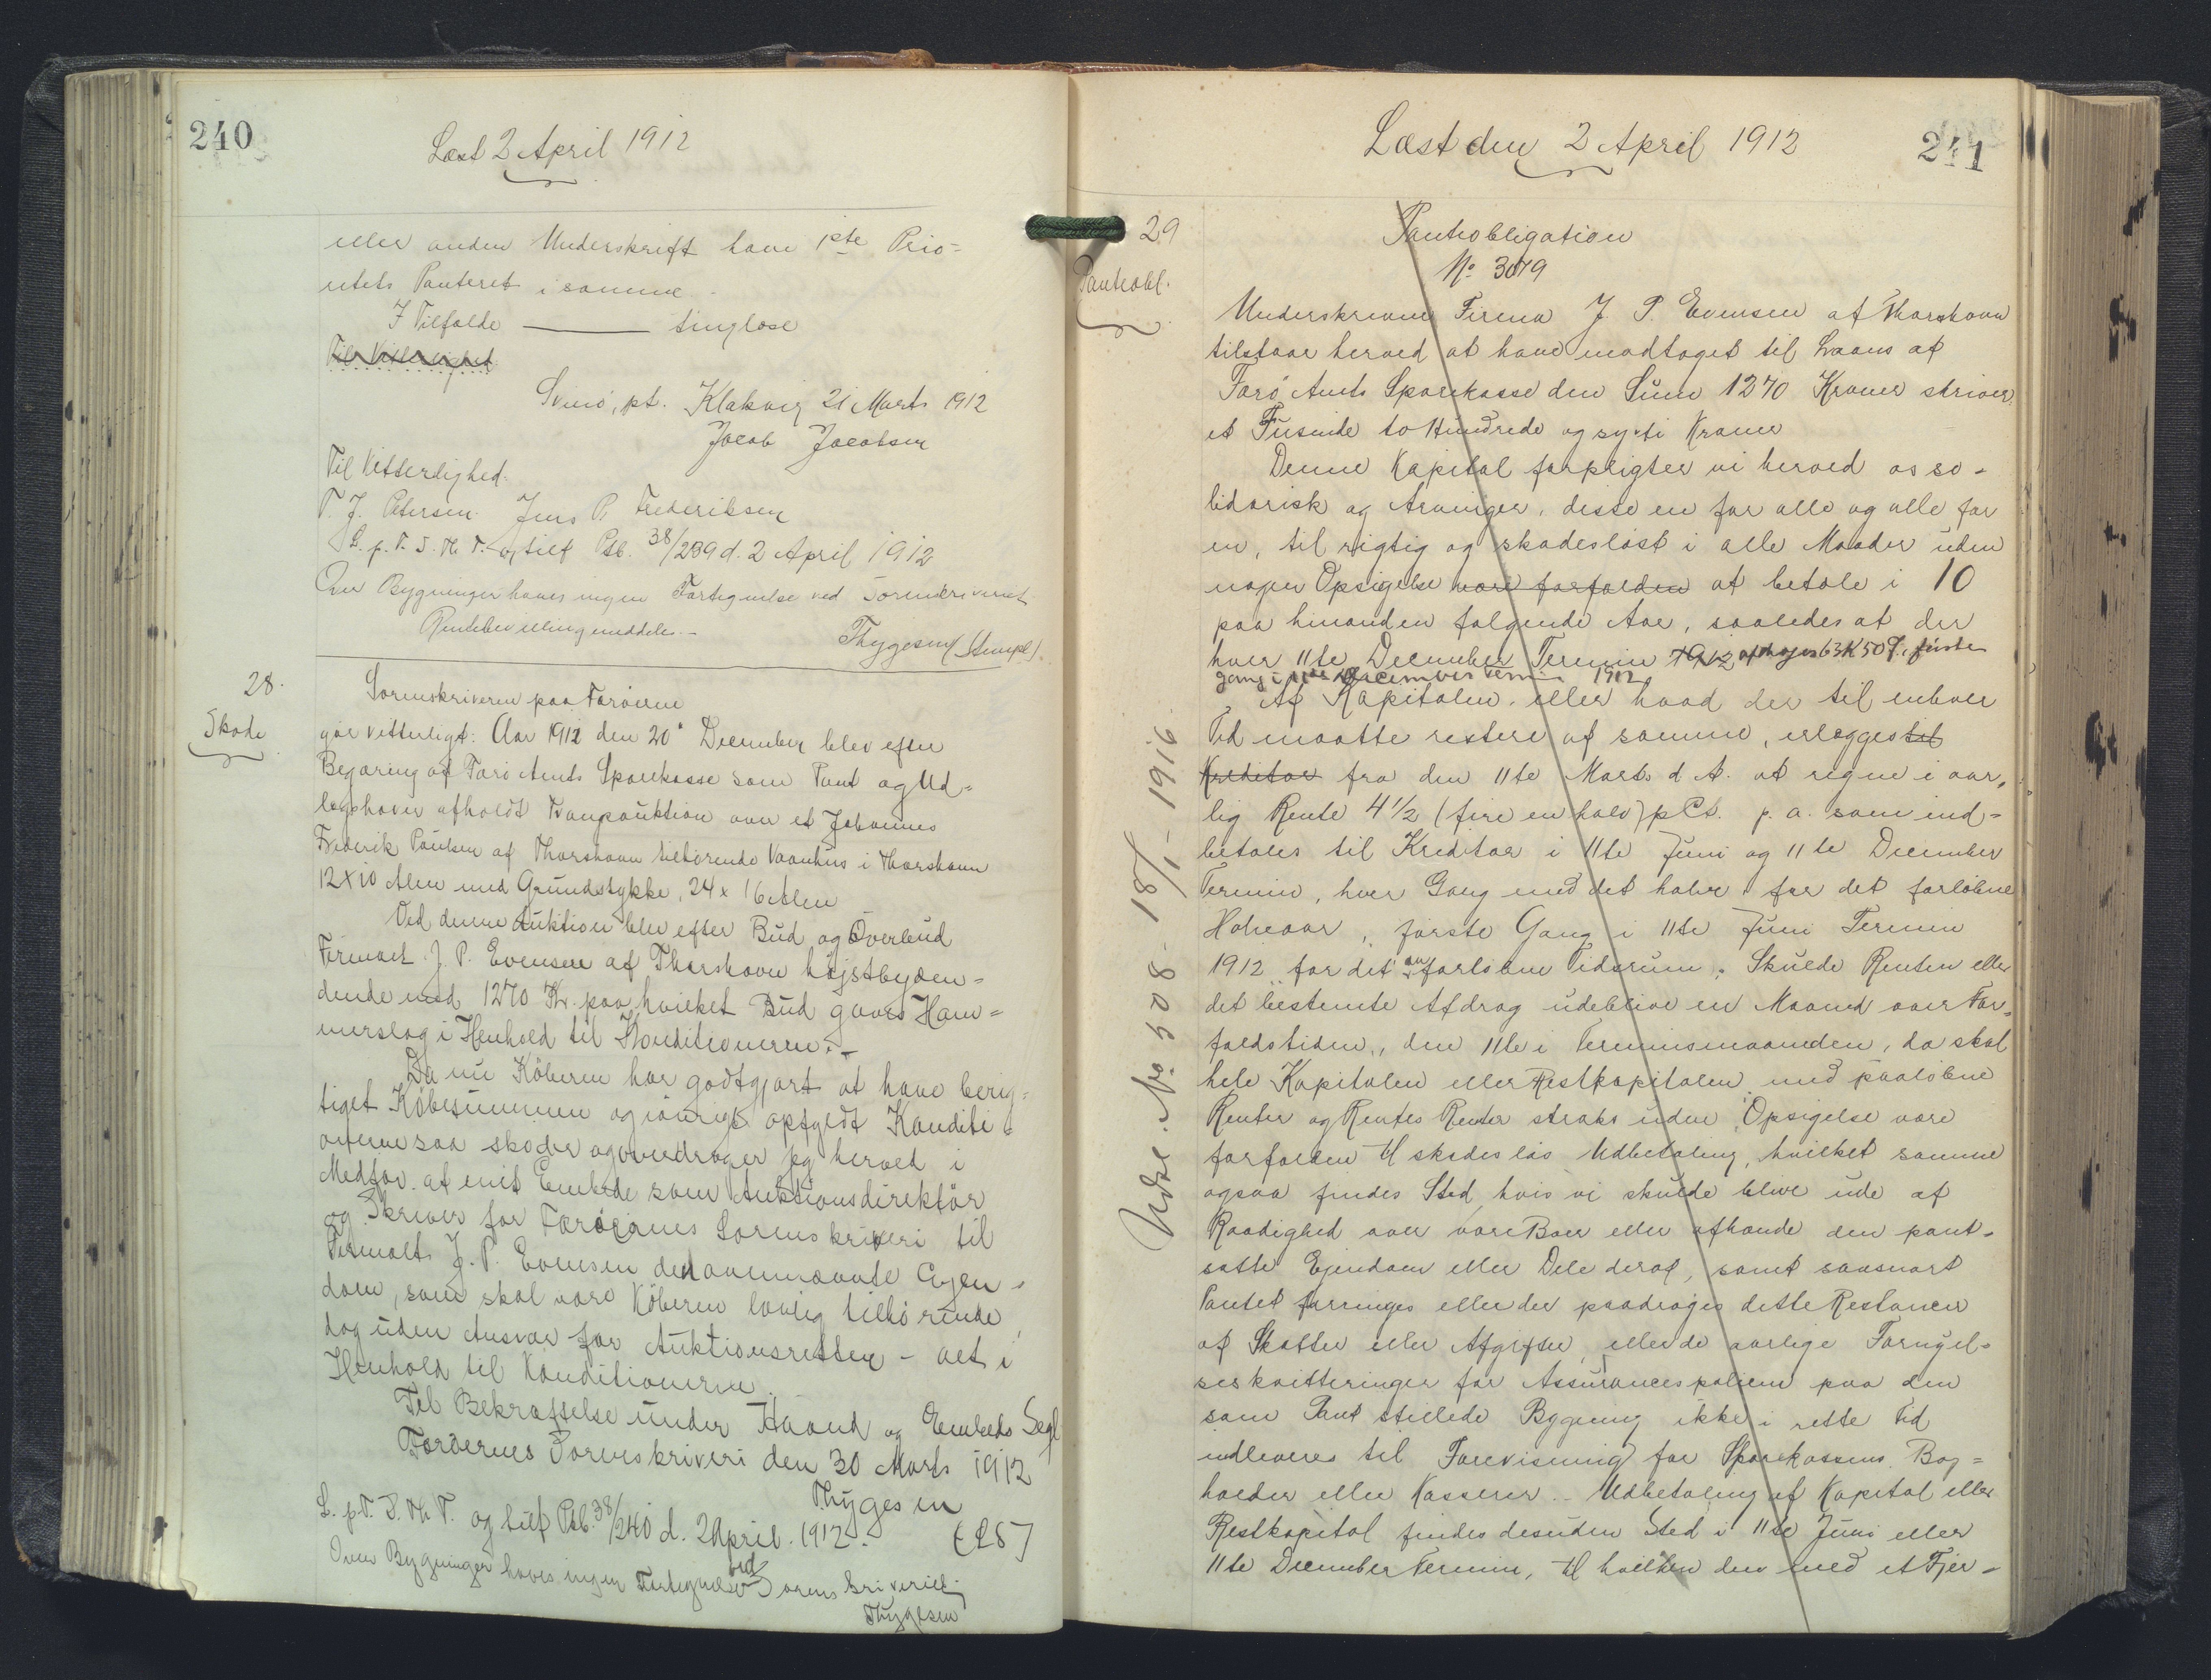 240
Læst 2 April 1912
eller anden Underskrift have 1ste Prio-
ritets Panteret i samme.
I Tilfælde ——— tinglæse
Til Vitterlighed
Svinø, pt. Klaksvig 21 Marts 1912
Jacob Jacobsen
Til Vitterlighed.
P. J. Petersen. Jens P. Frederiksen
L. p. V. S. Th. T. og tilf Psb. 38/239 d. 2 April 1912
Over Bygninger haves ingen Fortegnelse ved Sorenskriveriet
Rentebevilling meddeles.-
Thygesen (Stempel).
28.
Skøde
Sorenskriveren paa Færøerne
gør vitterligt: Aar 1912 den 20' December blev efter
Begæring af Færø Amts Sparekasse som Pant og Ud-
lægshaver afholdt Tvangsauktion over et Johannes
Frederik Poulsen af Thorshavn tilhørende Vaanhus i Thorshavn
12x10 Alen med Grundstykke, 24 x 16 Alen
Ved denne Auktion blev efter Bud og Overbud
Firmaet J. P. Evensen af Thorshavn højstbyden-
dende med 1270 Kr. paa hvilket Bud gaves Ham-
merslag i Henhold til Konditionerne.-
Da nu Køberen har godtgjort at have berig-
tiget Købesummen og iøvrigt opfyldt Konditi-
onerne saa skøder og overdrager jeg herved i
Medfør af mit Embede som Auktionsdirektør
og Skriver for Færøernes Sorenskriveri til
Firmaet J. P. Evensen den ovennævnte Ejen-
dom, som skal være Køberen lovlig tilhørende,
dog uden Ansvar for Auktionsretten - alt i
Henhold til Konditionerne.
Til Bekræftelse under Haand og Embeds Segl
Færøernes Sorenskriveri den 30 Marts 1912
Thygesen
(LS)
L. p. V. S. Th. T. og tilf Psb. 38/240 d. 2 April. 1912.
Over Bygninger haves ingen Fortegnelse ved Sorenskriveriet.
Thygesen
241
Læst den 2 April 1912
29
Panteobl.
Panteobligation
No 3079
Underskrevne Firma J. P. Evensen af Thorshavn
tilstaar herved at have modtaget til Laans af
Færø Amts Sparekasse den Sum 1270 Kroner skriver
et Tusinde to Hundrede og syvti Kroner
Denne Kapital forpligter vi herved os so-
lidarisk og Arvinger, disse en for alle og alle for
en, til rigtig og skadesløst i alle Maader uden
nogen Opsigelse være forfalden at betale i 10
paa hinanden følgende Aar, saaledes at der
hver 11te December Termin 1912, afdrages 63 K 50 Ø, første
Gang i 11te December Termin 1912
Af Kapitalen. eller hvad der til enhver
Tid maatte restere af samme, erlægges til
Kreditor fra den 11te Marts d A. at regne i aar-
lig Rente 4 1/2 (fire en halv) pCt. p. a. som ind-
betales til Kreditor i 11te Juni og 11te December
Termin, hver Gang med det halve for det forløbne
Halvaar, første Gang i 11te Juni Termin
1912 for det da forløbne Tidsrum. Skulde Renten eller
det bestemte Afdrag udeblive en Maaned over For-
faldstiden, den 11te i Terminsmaaneden, da skal
hele Kapitalen eller Restkapitalen med paaløbne
Renter og Rentes Renter straks uden Opsigelse være
forfalden til skadesløs Udbetaling, hvilket samme
ogsaa findes Sted hvis vi skulde blive ude af
Raadighed over vore Boer eller afhænde den pant-
satte Ejendom eller Dele deraf, samt saasnart
Pantet forringes eller der paadrages dette Restancer
af Skatter eller Afgifter, eller de aarlige Fornyel-
seskvitteringer for Assurancepolicen paa den
som Pant stillede Bygning ikke i rette Tid
indleveres til Forevisning for Sparekassens Bog-
holder eller Kasserer.- Udbetaling af Kapital eller
Restkapital findes desuden Sted i 11te Juni eller
11te December Termin, til hvilken den med et Fjer-
Udsl. No 508 - 18/1 - 1916